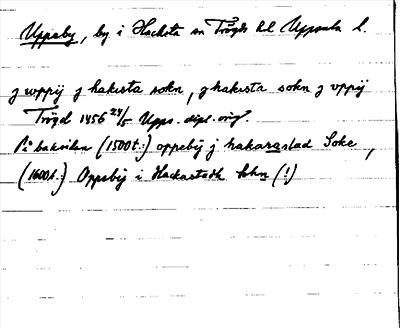 Uppeby, by i Hacksta sn Trögds hd Uppsala l.
j wppij j hakersta sokn, j hakersta sokn j vppij
Trögd 1456 24/5 Upps. dipl. orig.
På baksidan (1500t.:) oppebÿ j hakarastad Soke,
(1600t.:) Oppebÿ i Hackastadh sohn (!)